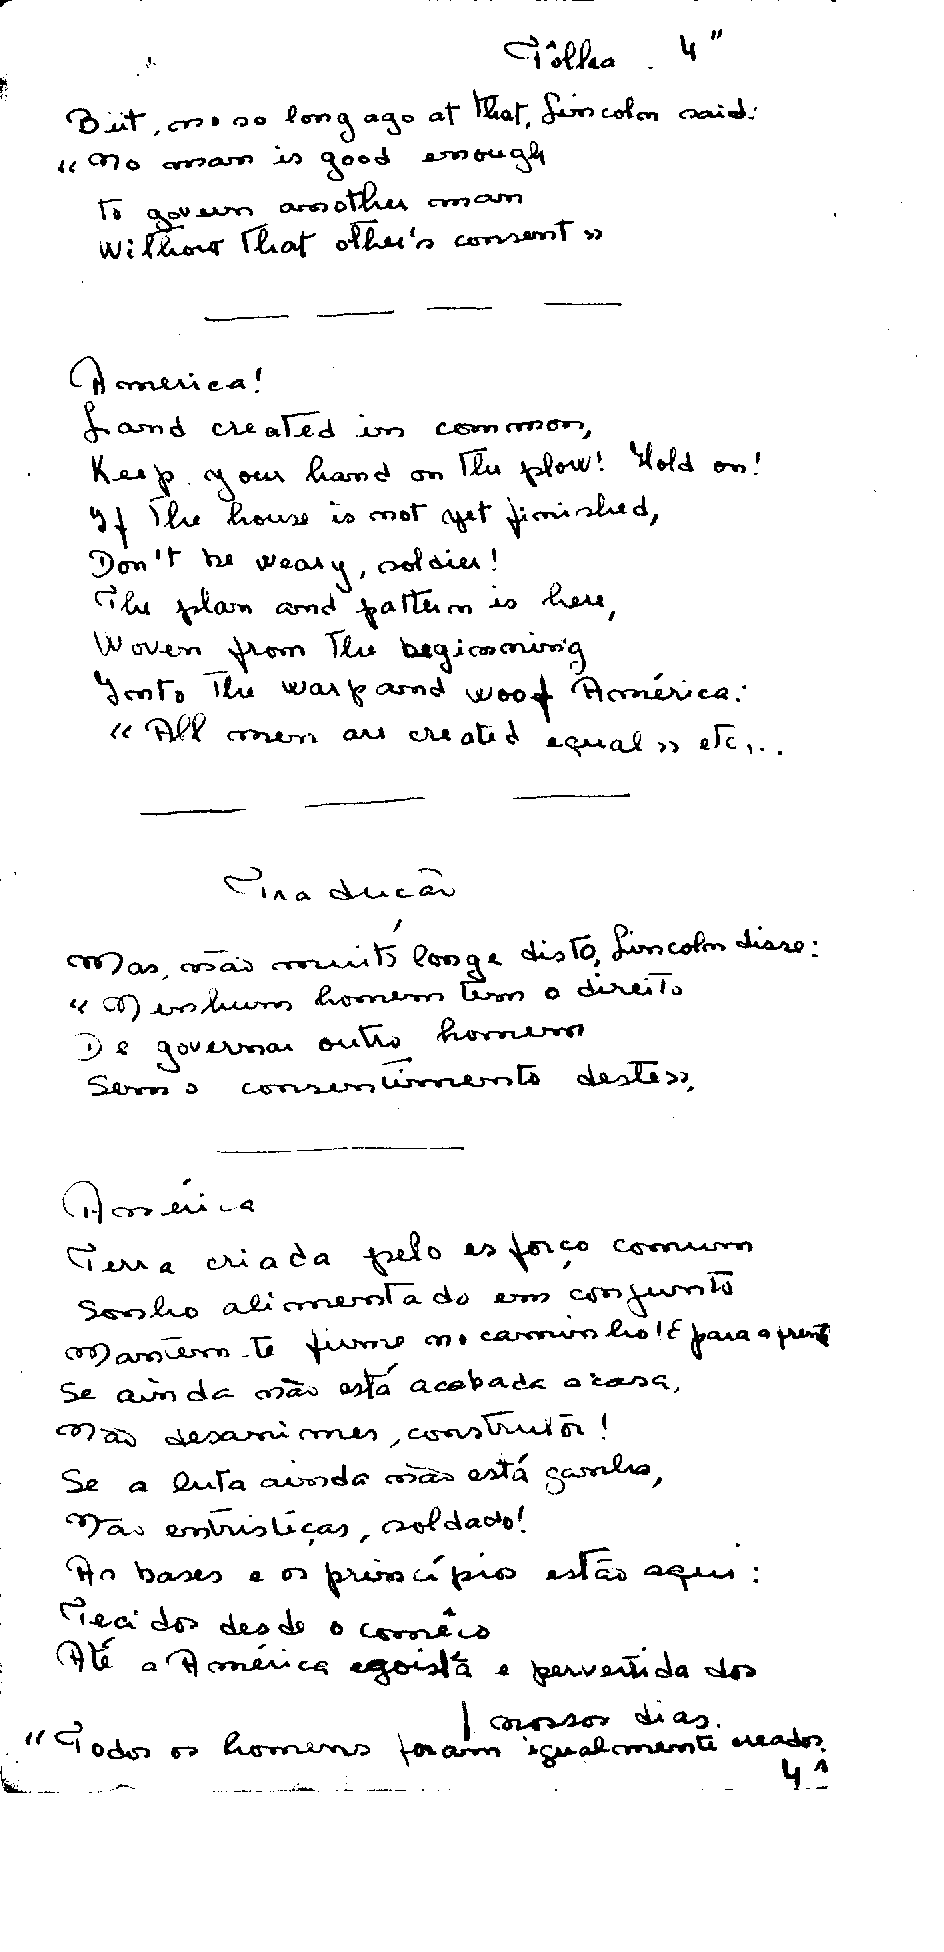 Fôlha. 4"
But, no so long ago at that, Lincoln said:
"No man is good enough
to govern another man
Without that other's consent»
America!
Land created in common,
Keep your hand on the plow! Hold on!
If the house is not yet finished,
Don't be weary, soldier!
The plan and pattern is here,
Woven from the beginning
Into the warp and woof América:
"All men are created equal» etc...
Traducão
Mas, não muito longe disto, Lincoln disse:
"Nenhum homem tem o direito
De governar outro homem
Sem o consentimento deste»,
América
Terra criada pelo esforço comum
Sonho alimentado em conjunto
Mantem-te firme no caminho! E para a frente
Se ainda não está acabada a casa,
Não desanimes, construtôr!
Se a luta ainda não está ganha,
Não entristeças, soldado!
As bases e os princípios estão aqui:
Tecidos desde o comêço
Até a América egoista e pervertida dos
nossos dias.
"Todos os homens foram igualmente creados.
4^